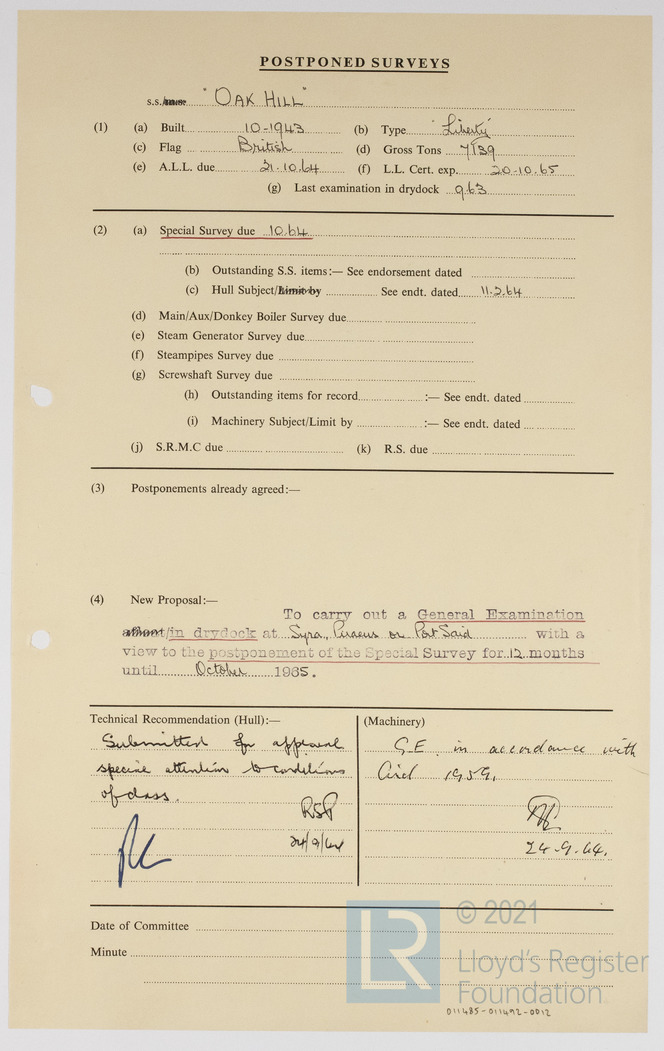 POSTPONED SURVEYS
s.s./ "OAK HILL"
(1) (a) Built 10-1943 (b) Type "Liberty"
(c) Flag British (d) Gross Tons 7139
(e) A.L.L. due 21.10.64 (f) L.L. Cert. exp. 20-10.65
(g) Last examination in drydock 9.63
(2) (a) Special Survey due 10.64
(b) Outstanding S.S. items:— See endorsement dated
(c) Hull Subject/Limit by See endt. dated 11.2.64
(d) Main/Aux/Donkey Boiler Survey due
(e) Steam Generator Survey due
(f) Steampipes Survey due
(g) Screwshaft Survey due
(h) Outstanding items for record :— See endt. dated
(i) Machinery Subject/Limit by :— See endt. dated
(j) S.R.M.C due (k) R.S. due
(3) Postponements already agreed:—
(4) New Proposal:—
To carry out a General Examination
afloat/in drydock at Syra, Piraeus or Port Said with a
view to the postponement of the Special Survey for 12 months
until October 1965.
Technical Recommendation (Hull):— (Machinery)
Submitted for approval
special attention to conditions
of class.
RSP
24/9/64
G.E. in accordance with
Circl 1959.
24.9.64.
Date of Committee
Minute
LR
© 2021
Lloyd's Register
Foundation
011485-011492-0012